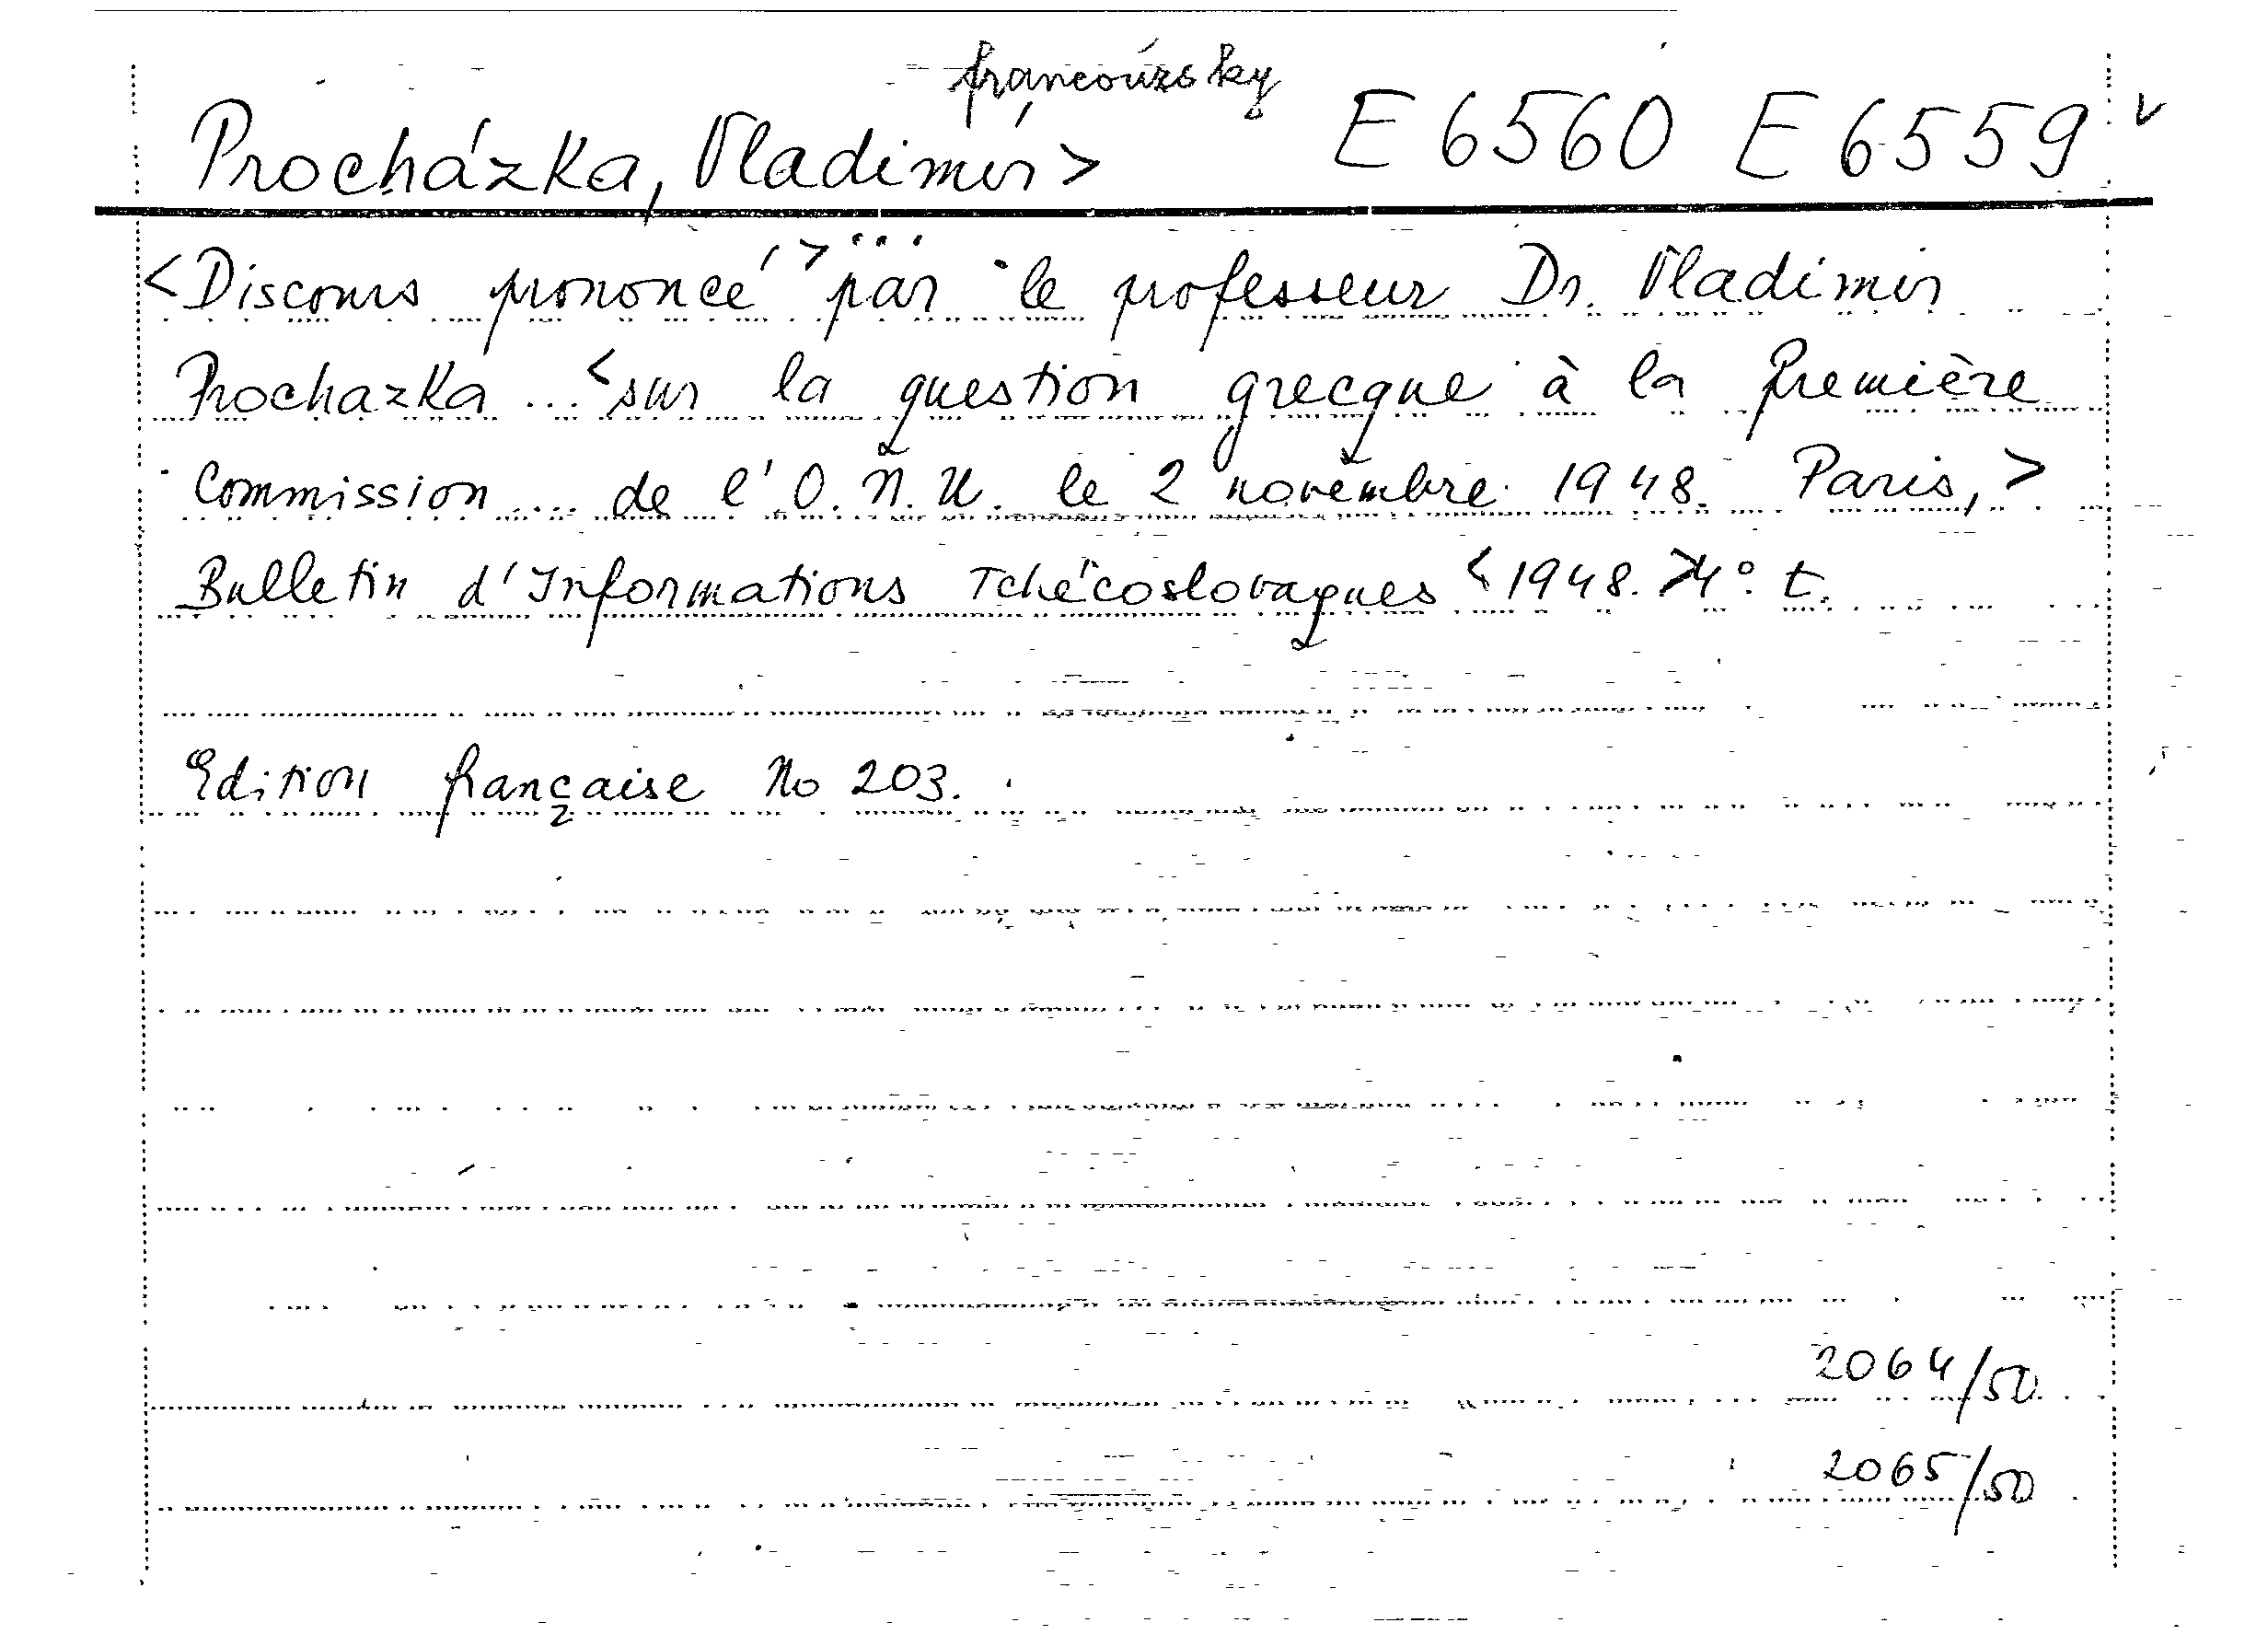 francouzsky
Procházka, Vladimír> E 6560 E 6559 v
<Discours prononcé > ... par le professeur Dr. Vladimir
Prochazka ... <sur la question grecque à la Première
Commission .... de l'O.N.U. le 2 novembre 1948. Paris, >
Bulletin d'Informations Tchécoslovaques <1948.> 4° t.
Edition française No 203.
2064/50
2065/50